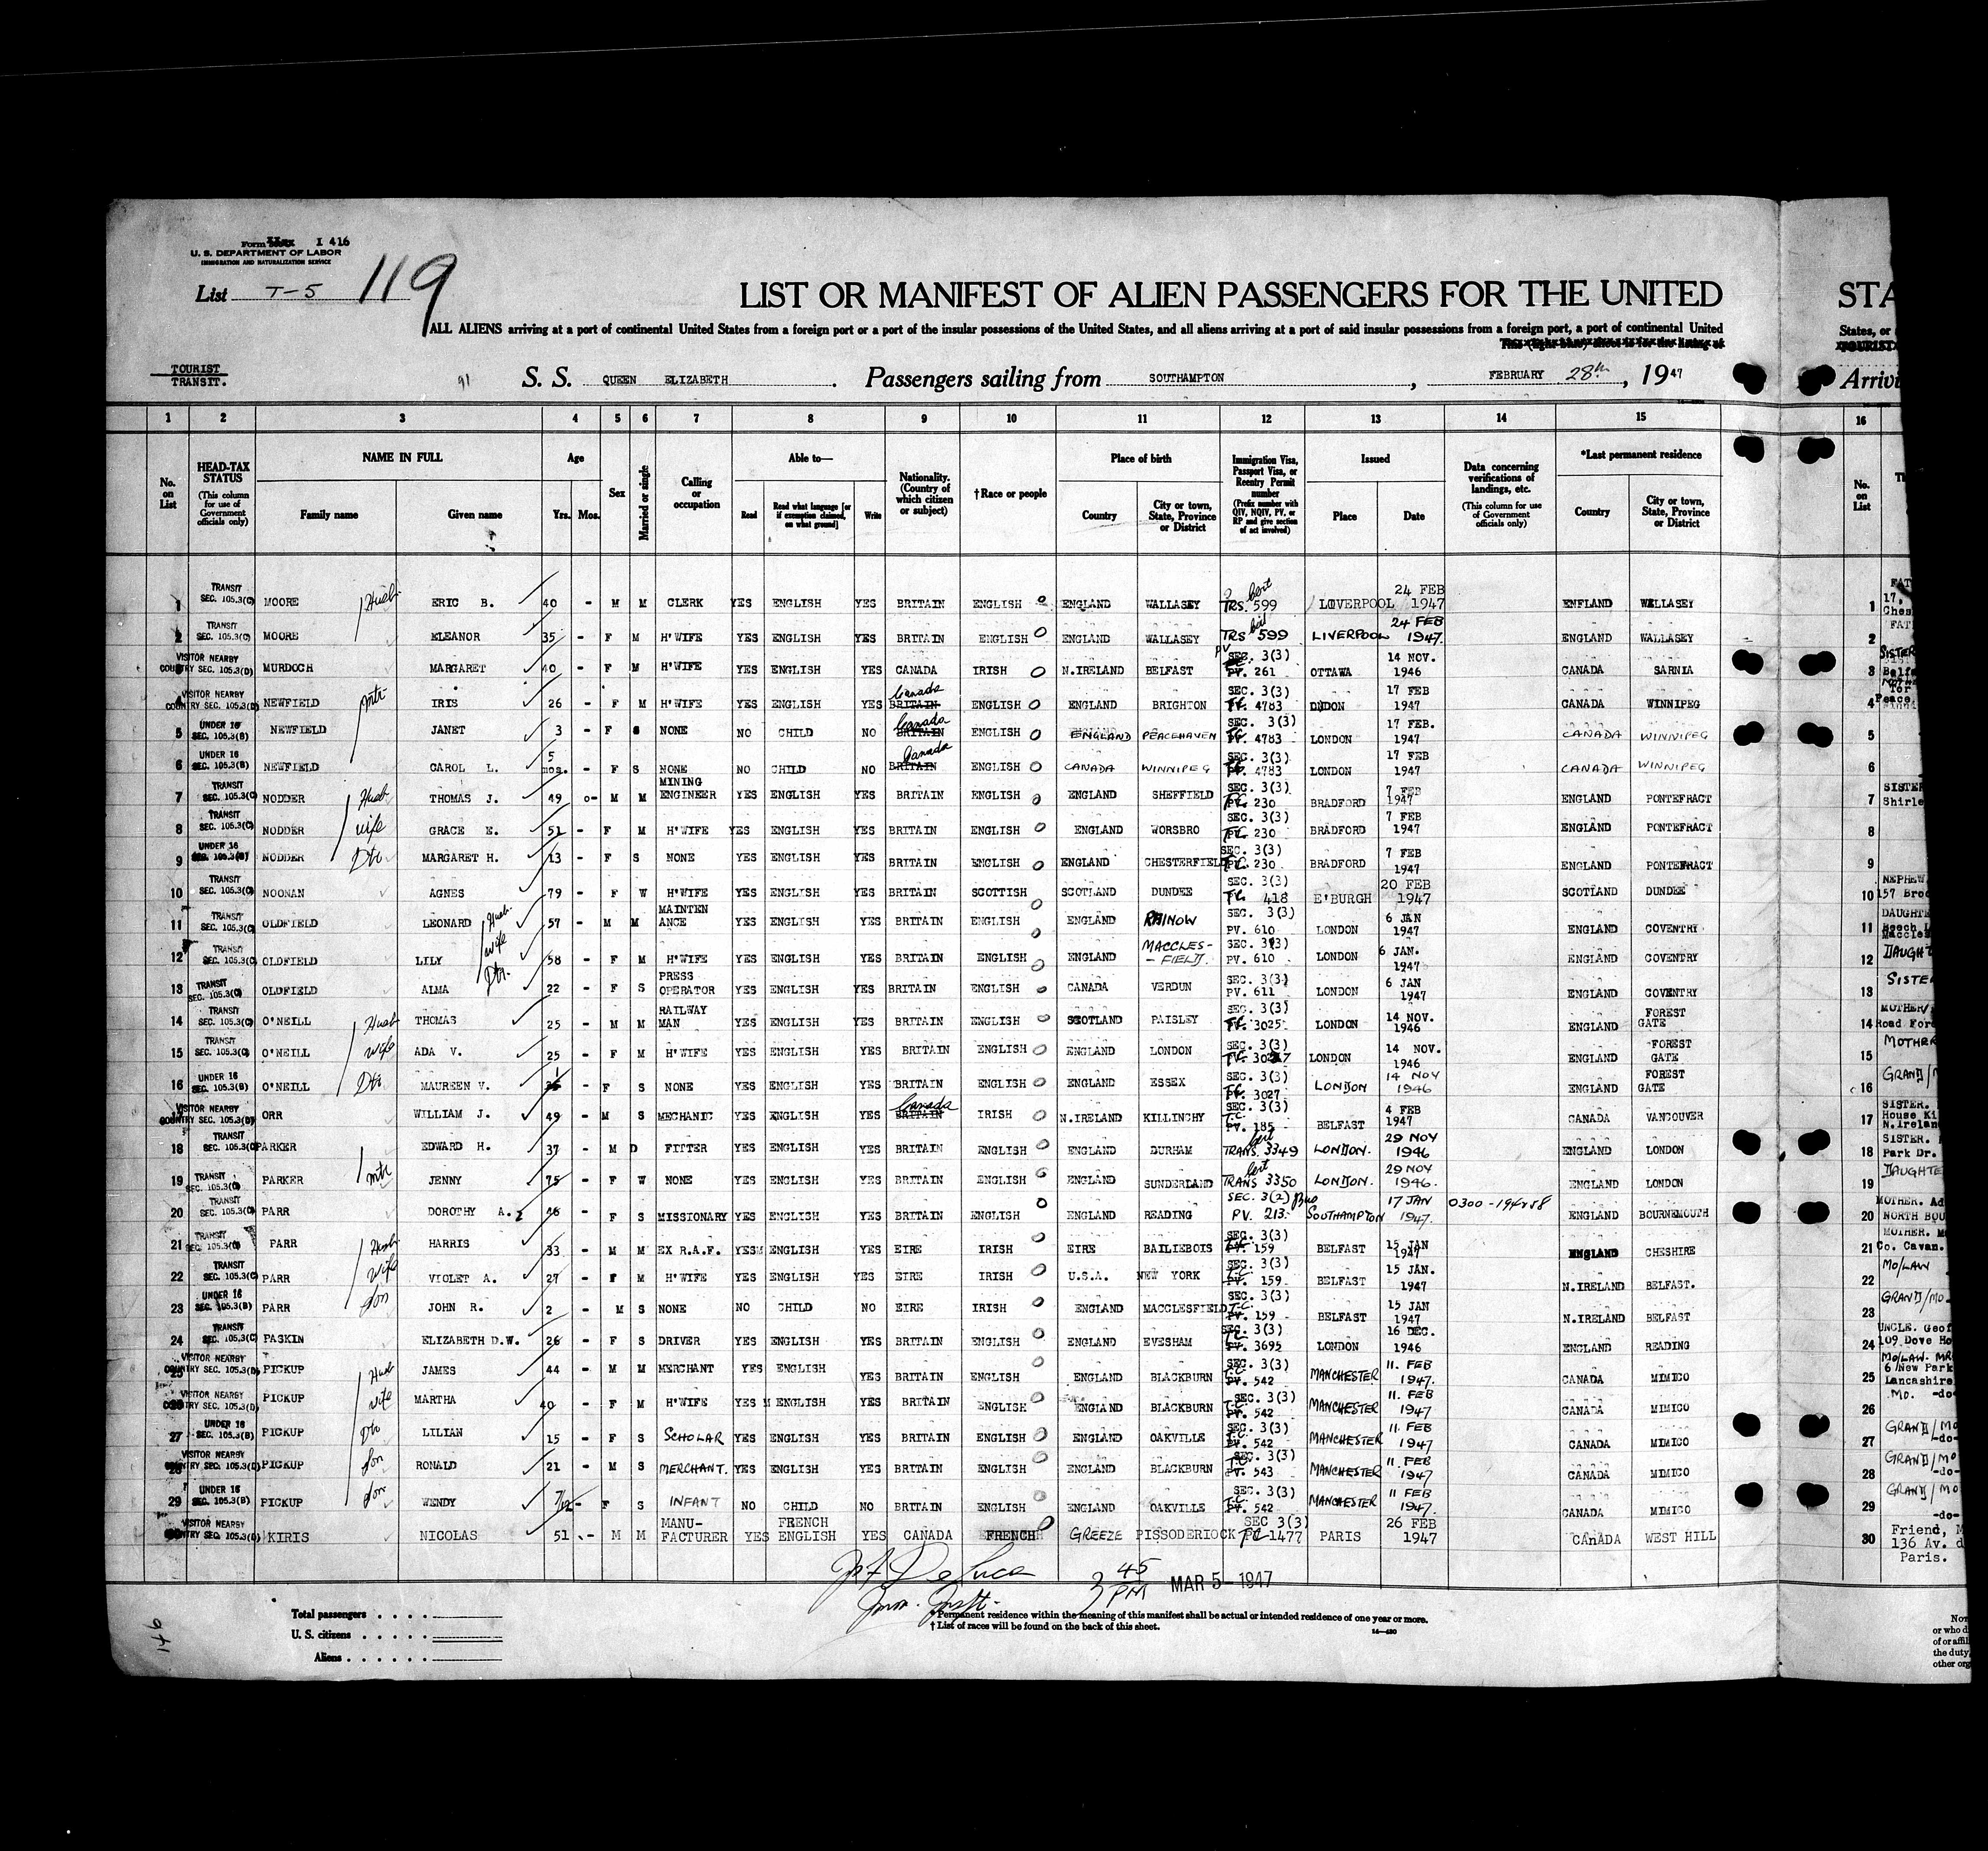 Form I 416
U. S. DEPARTMENT OF LABOR
IMMIGRATION AND NATURALIZATION SERVICE
List T-5 119
LIST OR MANIFEST OF ALIEN PASSENGERS FOR THE UNITED
ALL ALIENS arriving at a port of continental United States from a foreign port or a port of the insular possessions of the United States, and all aliens arriving at a port of said insular possessions from a foreign port, a port of continental United
TOURIST
TRANSIT.
91 S. S. QUEEN ELIZABETH. Passengers sailing from SOUTHAMPTON, FEBRUARY 28th, 1947
1 2 3 4 5 6 7 8 9 10 11 12 13 14 15
No. on List
HEAD-TAX STATUS (This column for use of Government officials only)
NAME IN FULL Family name Given name
Age Yrs. Mos.
Sex
Married or single
Calling or occupation
Able to— Read Read what language [or if exemption claimed, on what ground] Write
Nationality. (Country of which citizen or subject)
†Race or people
Place of birth Country City or town, State, Province or District
Immigration Visa, Passport Visa, or Reentry Permit number (Prefix number with QIV, NQIV, PV, or RP and give section of act involved)
Issued Place Date
Data concerning verifications of landings, etc. (This column for use of Government officials only)
*Last permanent residence Country City or town, State, Province or District
1 TRANSIT SEC. 105.3(C) MOORE Husb ERIC B. 40 - M M CLERK YES ENGLISH YES BRITAIN ENGLISH ENGLAND WALLASEY TRS. 599 LOVERPOOL 24 FEB 1947 ENFLAND WALLASEY
2 TRANSIT SEC. 105.3(C) MOORE ELEANOR 35 - F M H'WIFE YES ENGLISH YES BRITAIN ENGLISH ENGLAND WALLASEY TRS 599 LIVERPOOL 24 FEB 1947. ENGLAND WALLASEY
3 VISITOR NEARBY COUNTRY SEC. 105.3(D) MURDOCH MARGARET 40 - F M H'WIFE YES ENGLISH YES CANADA IRISH N.IRELAND BELFAST PV SEC. 3(3) PV. 261 OTTAWA 14 NOV. 1946 CANADA SARNIA
4 VISITOR NEARBY COUNTRY SEC. 105.3(D) NEWFIELD mtr IRIS 26 - F M H'WIFE YES ENGLISH YES Canada BRITAIN ENGLISH ENGLAND BRIGHTON SEC. 3(3) PV. 4783 DNDON 17 FEB 1947 CANADA WINNIPEG
5 UNDER 16 SEC. 105.3(B) NEWFIELD JANET 3 - F S NONE NO CHILD NO Canada BRITAIN ENGLISH ENGLAND PEACEHAVEN SEC. 3(3) PV. 4783 LONDON 17 FEB. 1947 CANADA WINNIPEG
6 UNDER 16 SEC. 105.3(B) NEWFIELD CAROL L. 5 mos. - F S NONE NO CHILD NO Canada BRITAIN ENGLISH CANADA WINNIPEG SEC. 3(3) PV. 4783 LONDON 17 FEB 1947 CANADA WINNIPEG
7 TRANSIT SEC. 105.3(C) NODDER Husb THOMAS J. 49 - M M MINING ENGINEER YES ENGLISH YES BRITAIN ENGLISH ENGLAND SHEFFIELD SEC. 3(3) PV. 230 BRADFORD 7 FEB 1947 ENGLAND PONTEFRACT
8 TRANSIT SEC. 105.3(C) NODDER wife GRACE E. 51 - F M H'WIFE YES ENGLISH YES BRITAIN ENGLISH ENGLAND WORSBRO SEC. 3(3) PV. 230 BRADFORD 7 FEB 1947 ENGLAND PONTEFRACT
9 UNDER 16 SEC. 105.3(B) NODDER Dtr MARGARET H. 13 - F S NONE YES ENGLISH YES BRITAIN ENGLISH ENGLAND CHESTERFIELD SEC. 3(3) PV. 230 BRADFORD 7 FEB 1947 ENGLAND PONTEFRACT
10 TRANSIT SEC. 105.3(C) NOONAN AGNES 79 - F W H'WIFE YES ENGLISH YES BRITAIN SCOTTISH SCOTLAND DUNDEE SEC. 3(3) 418 E'BURGH 20 FEB 1947 SCOTLAND DUNDEE
11 TRANSIT SEC. 105.3(C) OLDFIELD LEONARD Husb 57 - M M MAINTEN ANCE YES ENGLISH YES BRITAIN ENGLISH ENGLAND RAINOW SEC. 3(3) PV. 610 LONDON 6 JAN 1947 ENGLAND COVENTRY
12 TRANSIT SEC. 105.3(C) OLDFIELD LILY wife 58 - F M H'WIFE YES ENGLISH YES BRITAIN ENGLISH ENGLAND MACCLES- -FIELD. SEC. 3(3) PV. 610 LONDON 6 JAN. 1947 ENGLAND COVENTRY
13 TRANSIT SEC. 105.3(C) OLDFIELD ALMA Dtr. 22 - F S PRESS OPERATOR YES ENGLISH YES BRITAIN ENGLISH CANADA VERDUN SEC. 3(3) PV. 611 LONDON 6 JAN 1947 ENGLAND COVENTRY
14 TRANSIT SEC. 105.3(C) O'NEILL Husb THOMAS 25 - M M RAILWAY MAN YES ENGLISH YES BRITAIN ENGLISH SCOTLAND PAISLEY SEC. 3(3) PV. 3025 LONDON 14 NOV. 1946 ENGLAND FOREST GATE
15 TRANSIT SEC. 105.3(C) O'NEILL wife ADA V. 25 - F M H'WIFE YES ENGLISH YES BRITAIN ENGLISH ENGLAND LONDON SEC. 3(3) LONDON 14 NOV. 1946 ENGLAND FOREST GATE
16 UNDER 16 SEC. 105.3(B) O'NEILL Dtr MAUREEN V. 1 - F S NONE YES ENGLISH YES BRITAIN ENGLISH ENGLAND ESSEX SEC. 3(3) PV. 3027 LONDON 14 NOV 1946 ENGLAND FOREST GATE
17 VISITOR NEARBY COUNTRY SEC. 105.3(D) ORR WILLIAM J. 49 - M S MECHANIC YES ENGLISH YES Canada BRITAIN IRISH N.IRELAND KILLINCHY SEC. 3(3) T.C. PV. 185 BELFAST 4 FEB 1947 CANADA VANCOUVER
18 TRANSIT SEC. 105.3(C) PARKER EDWARD H. 37 - M D FITTER YES ENGLISH YES BRITAIN ENGLISH ENGLAND DURHAM TRANS. 3349 LONDON. 29 NOV 1946 ENGLAND LONDON
19 TRANSIT SEC. 105.3(C) PARKER mtr JENNY 75 - F W NONE YES ENGLISH YES BRITAIN ENGLISH ENGLAND SUNDERLAND TRANS 3350 LONDON. 29 NOV 1946. ENGLAND LONDON
20 TRANSIT SEC. 105.3(C) PARR DOROTHY A. 46 - F S MISSIONARY YES ENGLISH YES BRITAIN ENGLISH ENGLAND READING SEC. 3(2) PV. 213 SOUTHAMPTON 17 JAN 1947. ENGLAND BOURNEMOUTH
21 TRANSIT SEC. 105.3(C) PARR Husb HARRIS 33 - M M EX R.A.F. YES ENGLISH YES EIRE IRISH EIRE BAILIEBOIS SEC. 3(3) PV. 159 BELFAST 15 JAN 1947 ENGLAND CHESHIRE
22 TRANSIT SEC. 105.3(C) PARR wife VIOLET A. 27 - F M H'WIFE YES ENGLISH YES EIRE IRISH U.S.A. NEW YORK SEC. 3(3) PV. 159 BELFAST 15 JAN. 1947 N.IRELAND BELFAST.
23 UNDER 16 SEC. 105.3(B) PARR Son JOHN R. 2 - M S NONE NO CHILD NO EIRE IRISH ENGLAND MACCLESFIELD SEC. 3(3) T.C. PV. 159 BELFAST 15 JAN 1947 N.IRELAND BELFAST
24 TRANSIT SEC. 105.3(C) PASKIN ELIZABETH D.W. 26 - F S DRIVER YES ENGLISH YES BRITAIN ENGLISH ENGLAND EVESHAM SEC. 3(3) PV. 3695 LONDON 16 DEC. 1946 ENGLAND READING
25 VISITOR NEARBY COUNTRY SEC. 105.3(D) PICKUP Husb JAMES 44 - M M MERCHANT YES ENGLISH YES BRITAIN ENGLISH ENGLAND BLACKBURN SEC. 3(3) T.C. PV. 542 MANCHESTER 11. FEB 1947. CANADA MIMICO
26 VISITOR NEARBY COUNTRY SEC. 105.3(D) PICKUP wife MARTHA 40 - F M H'WIFE YES ENGLISH YES BRITAIN ENGLISH ENGLAND BLACKBURN SEC. 3(3) T.C. PV. 542 MANCHESTER 11. FEB 1947 CANADA MIMICO
27 UNDER 16 SEC. 105.3(B) PICKUP Dtr LILIAN 15 - F S SCHOLAR YES ENGLISH YES BRITAIN ENGLISH ENGLAND OAKVILLE SEC. 3(3) T.C. PV. 542 MANCHESTER 11. FEB 1947 CANADA MIMICO
28 VISITOR NEARBY COUNTRY SEC. 105.3(D) PICKUP Son RONALD 21 - M S MERCHANT. YES ENGLISH YES BRITAIN ENGLISH ENGLAND BLACKBURN SEC. 3(3) T.C. PV. 543 MANCHESTER 11. FEB 1947 CANADA MIMICO
29 UNDER 16 SEC. 105.3(B) PICKUP WENDY 7/12 - F S INFANT NO CHILD NO BRITAIN ENGLISH ENGLAND OAKVILLE SEC. 3(3) T.C. PV. 542 MANCHESTER 11 FEB 1947. CANADA MIMICO
VISITOR NEARBY COUNTRY SEC. 105.3(D) KIRIS NICOLAS 51 - M M MANU- FACTURER YES FRENCH ENGLISH YES CANADA FRENCH GREEZE PISSODERIOCK SEC 3(3) 1477 PARIS 26 FEB 1947 CANADA WEST HILL
De Luca
3 45 PM MAR 5 - 1947
Total passengers
U. S. citizens
Aliens
*Permanent residence within the meaning of this manifest shall be actual or intended residence of one year or more.
†List of races will be found on the back of this sheet.
146
STA
States, or
TOURIST
Arrivi
16
No. on List
1 FAT 17, Ches
2 FAT
3 SISTER Belfa
4 Peace
5
6
7 SISTER Shirle
8
9
10 NEPHEW 157 Broo
11 DAUGHTE
12 DAUGHT
13 SISTE
14 MOTHER/ Road Fore
15 MOTHER
16 GRAND/M
17 SISTER. House Ki N.Irelan
18 SISTER. Park Dr.
19 DAUGHTE
20 MOTHER. Ad NORTH BOU
21 MOTHER. M Co. Cavan.
22 MO/LAW
23 GRAND/MO.
24 UNCLE. Geof 109 Dove Ho
25 MO/LAW. MR 6 New Park Lancashire
26 MO. -do-
27 GRAND/MO -do-
28 GRAND/MO -do-
29 GRAND/MO -do-
30 Friend, M 136 Av. d Paris.